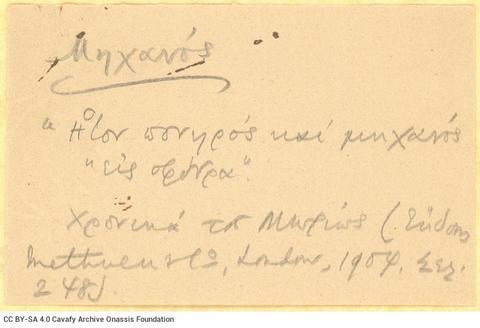 Μηχανός
"Ἦτον πονηρός καί μηχανός
"εἰς σφόδρα".
Χρονικά τοῦ Μωρέως (Ἔκδοσις
Methuen & Co, London, 1904. Σελ.
248).
CC BY-SA 4.0 Cavafy Archive Onassis Foundation